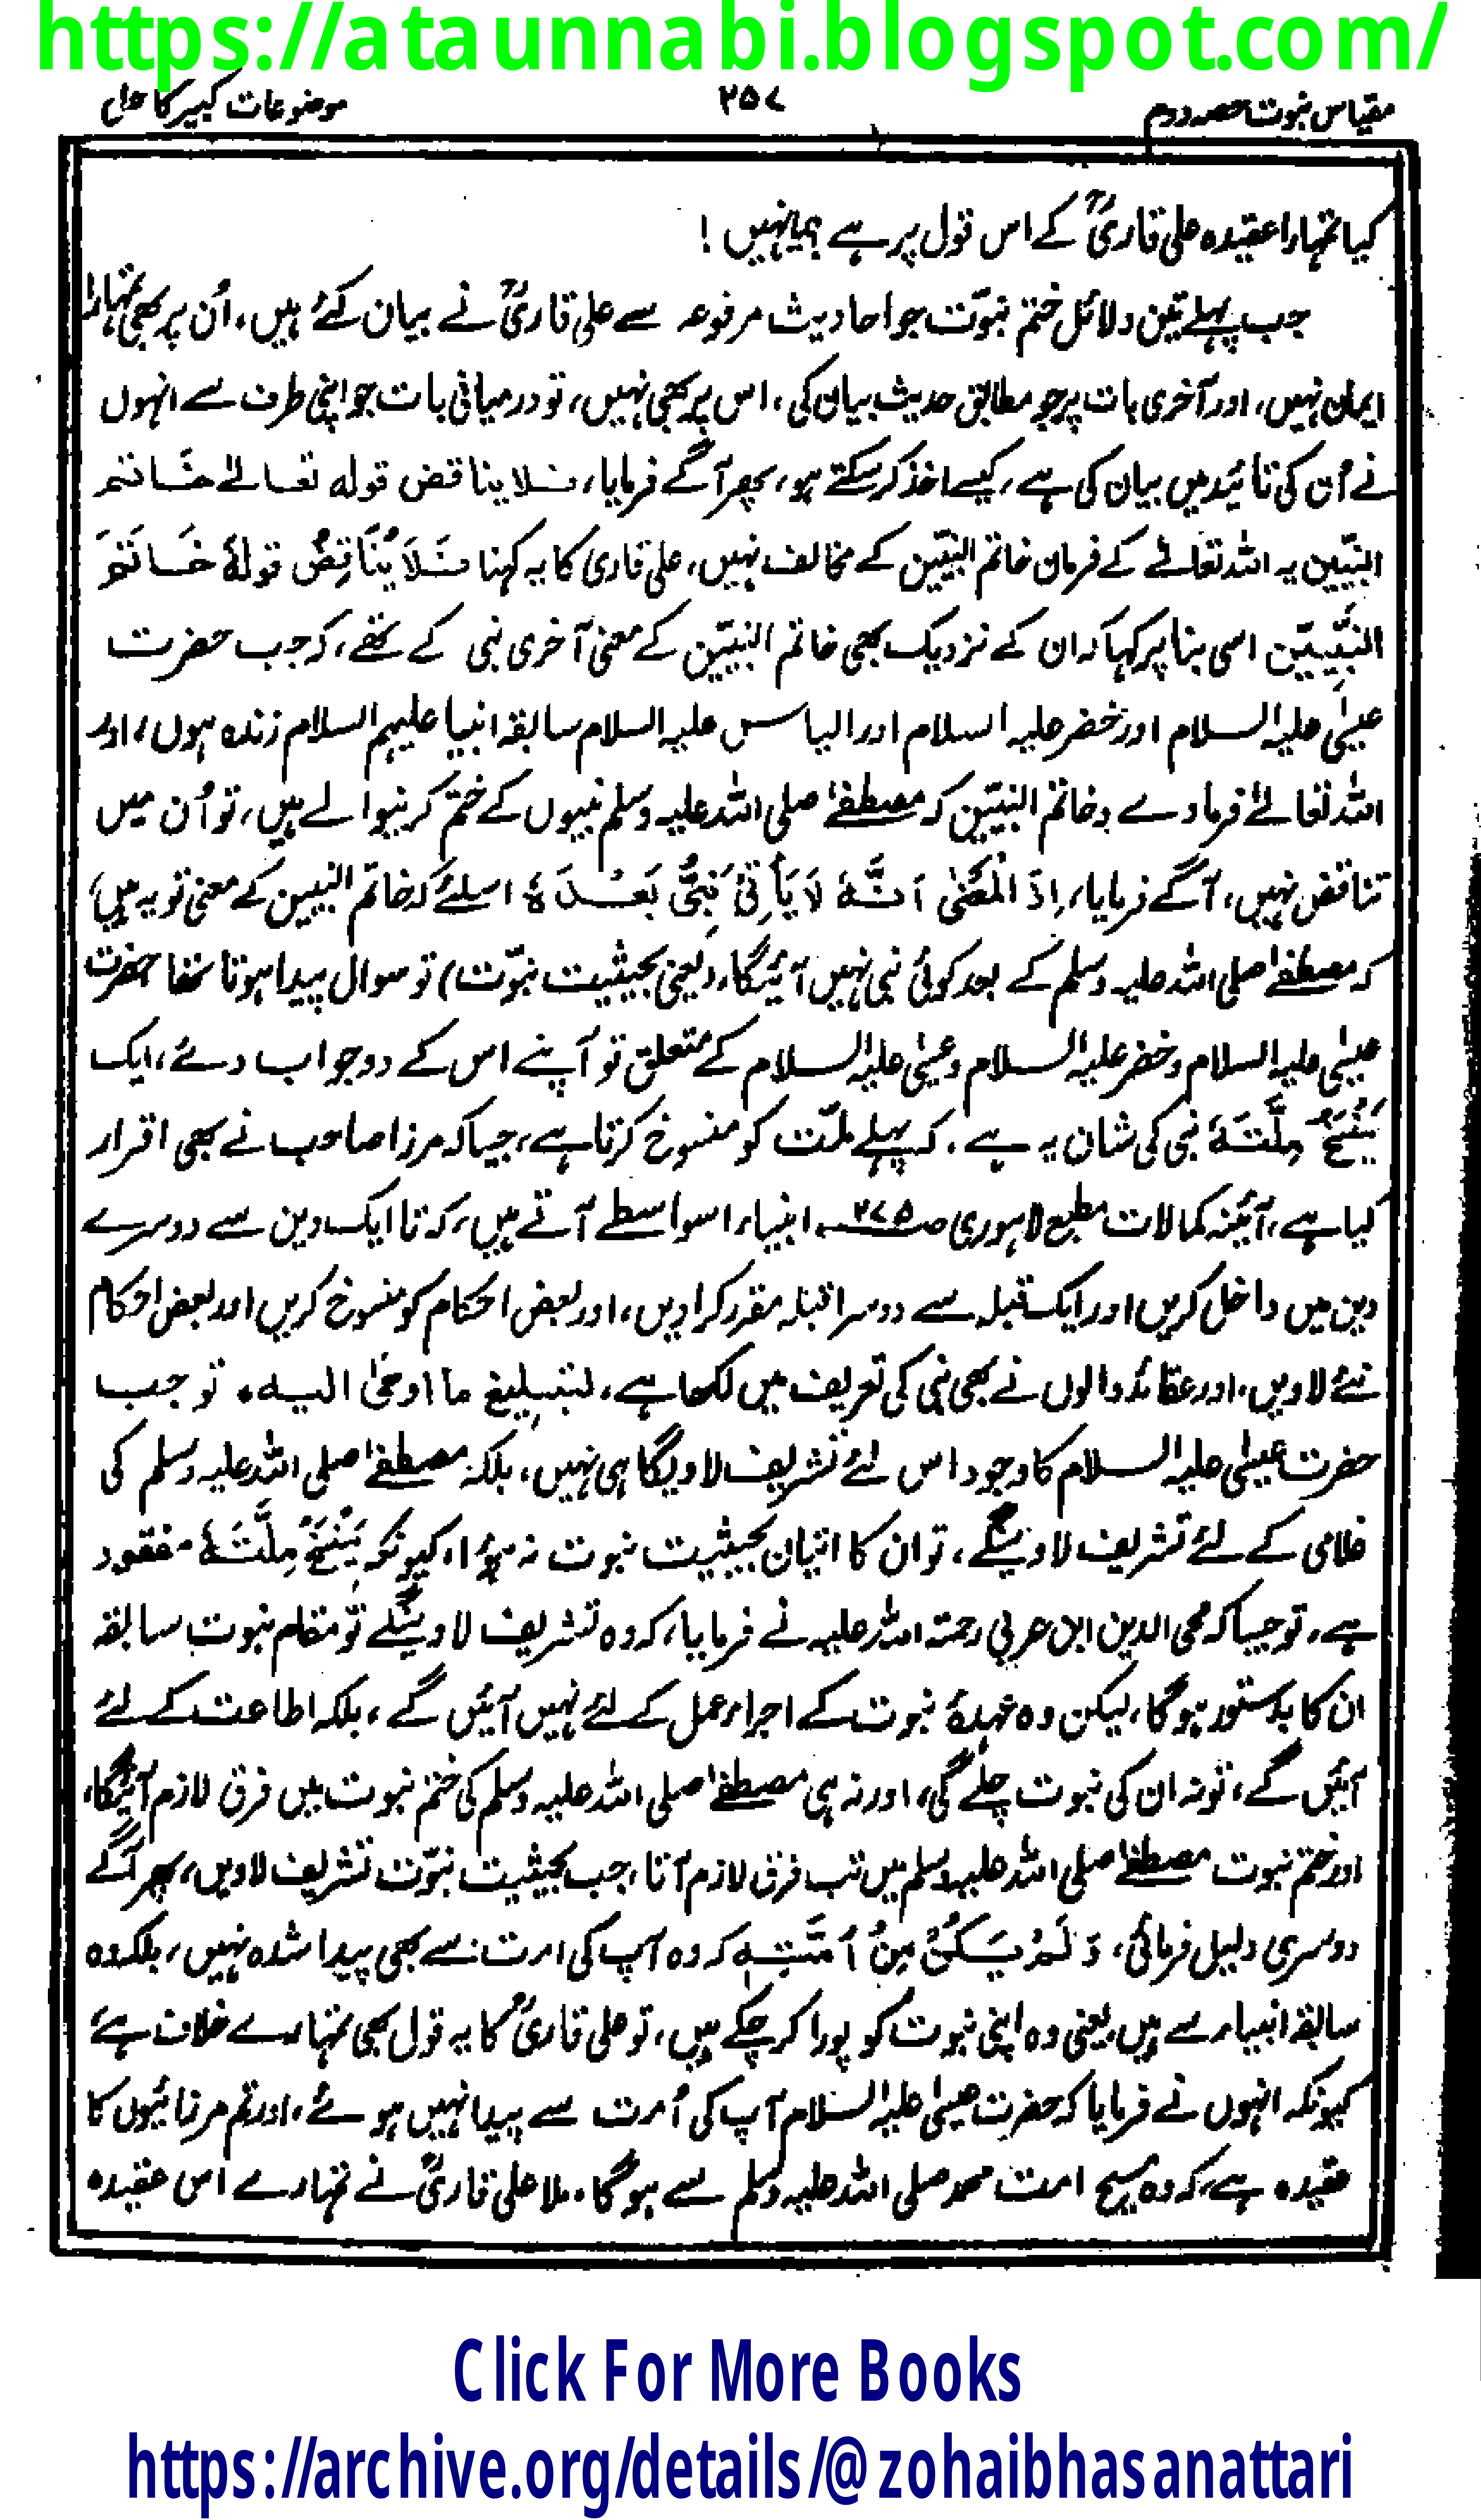 https://ataunnabi.blogspot.com/
مقیاس نبوت حصہ دوم ۲۵۷ موضوعات کبیر کا حل
کیا تمہارا عقیدہ علی قاریؒ کے اس قول پر ہے یا نہیں !
جب پہلے تین دلائل ختم نبوّت جو احادیث مرفوعہ سے علی قاریؒ نے بیان کئے ہیں، اُن پر بھی تمہارا
ایمان نہیں، اور آخری بات پر جو مطابق حدیث بیان کی، اس پر بھی نہیں، تو درمیانی بات جو اپنی طرف سے انہوں
نے اُن کی تائید میں بیان کی ہے، کیسے اخذ کر سکتے ہو، پھر آگے فرمایا، فلا یناقض قولہ تعالےٰ خاتم
النبیّین یہ اللہ تعالےٰ کے فرمان خاتم النبیّین کے مخالف نہیں، علی قاری کا یہ کہنا فَلَا یُنَاقِضُ قولہٗ خَاتَمَ
النَّبِیّٖن اسی بنا پر کہا کہ ان کے نزدیک بھی خاتم النبیّین کے معنی آخری نبی کے تھے، کہ جب حضرت
عیسٰی علیہ السلام اور خضر علیہ السلام اور الیاس علیہ السلام سابقہ انبیا علیہم السلام زندہ ہوں، اور
اللہ تعالےٰ فرما دے وخاتم النبیّین کہ مصطفےٰ صلی اللہ علیہ وسلم نبیوں کے ختم کرنیوالے ہیں، تو اُن میں
تناقض نہیں، آگے فرمایا، اِذَ الْمَعْنٰی اَنَّہٗ لَا یَأْتِیْ نَبِیٌّ بَعْدَہٗ اسلئے کہ خاتم النبیین کے معنی تو یہ ہیں،
کہ مصطفےٰ صلی اللہ علیہ وسلم کے بعد کوئی نبی نہیں آئیگا، (یعنی بحیثیت نبوّت) تو سوال پیدا ہوتا تھا حضرت
عیسٰی علیہ السلام وخضر علیہ السلام وعیسٰی علیہ السلام کے متعلق تو آپنے اس کے دو جواب دئے، ایک
یَنْسَخُ مِلَّتَہٗ نبی کی شان یہ ہے، کہ پہلے ملّت کو منسوخ کرتا ہے، جیسا کہ مرزا صاحب نے بھی اقرار
کیا ہے، آئینہ کمالات مطبع لاہوری صـ۲۷۵ـ، انبیاء اسواسطے آتے ہیں، کہ تا ایک دین سے دوسرے
دین میں داخل کریں اور ایک قبلہ سے دوسرا قبلہ مقرر کرا دیں، اور بعض احکام کو منسوخ کریں اور بعض احکام
نئے لاویں، اور عقائد والوں نے بھی نبی کی تعریف میں لکھا ہے، لتبلیغ ما اوحیٰ الیہ، تو جب
حضرت عیسٰی علیہ السلام کا وجود اس لئے تشریف لاویگا ہی نہیں، بلکہ مصطفےٰ صلی اللہ علیہ وسلم کی
غلامی کے لئے تشریف لاوینگے، تو ان کا اتیان بحیثیت نبوت نہ ہؤا، کیونکہ یَنْسَخُ مِلَّتَہٗ مفقود
ہے، تو جیسا کہ محی الدین ابن عربی رحمۃ اللہ علیہ نے فرمایا، کہ وہ تشریف لاوینگے تو مقام نبوت سابقہ
ان کا بدستور ہو گا، لیکن وہ عہدۂ نبوت کے اجراء عمل کے لئے نہیں آئیں گے، بلکہ اطاعت کے لئے
آئیں گے، تو نہ ان کی نبوت چلے گی، اور نہ ہی مصطفےٰ صلی اللہ علیہ وسلم کی ختم نبوت میں فرق لازم آئیگا،
اور ختم نبوت مصطفےٰ صلی اللہ علیہ وسلم میں تب فرق لازم آتا، جب بحیثیت نبوّت تشریف لاویں، پھر آگے
دوسری دلیل فرمائی، وَ لَمْ یَکُنْ مِنْ اُمَّتِہٖ کہ وہ آپ کی امت سے بھی پیدا شدہ نہیں، بلکہ وہ
سابقہ انبیاء سے ہیں، یعنی وہ اپنی نبوت کو پورا کر چکے ہیں، تو علی قاریؒ کا یہ قول بھی تمہارے خلاف ہے
کیونکہ انہوں نے فرمایا کہ حضرت عیسٰی علیہ السلام آپ کی اُمت سے پیدا نہیں ہوئے، اور تم مرزائیوں کا
عقیدہ ہے، کہ وہ مسیح امت محمد صلی اللہ علیہ وسلم سے ہو گا، ملا علی قاریؒ نے تمہارے اس عقیدہ
Click For More Books
https://archive.org/details/@zohaibhasanattari